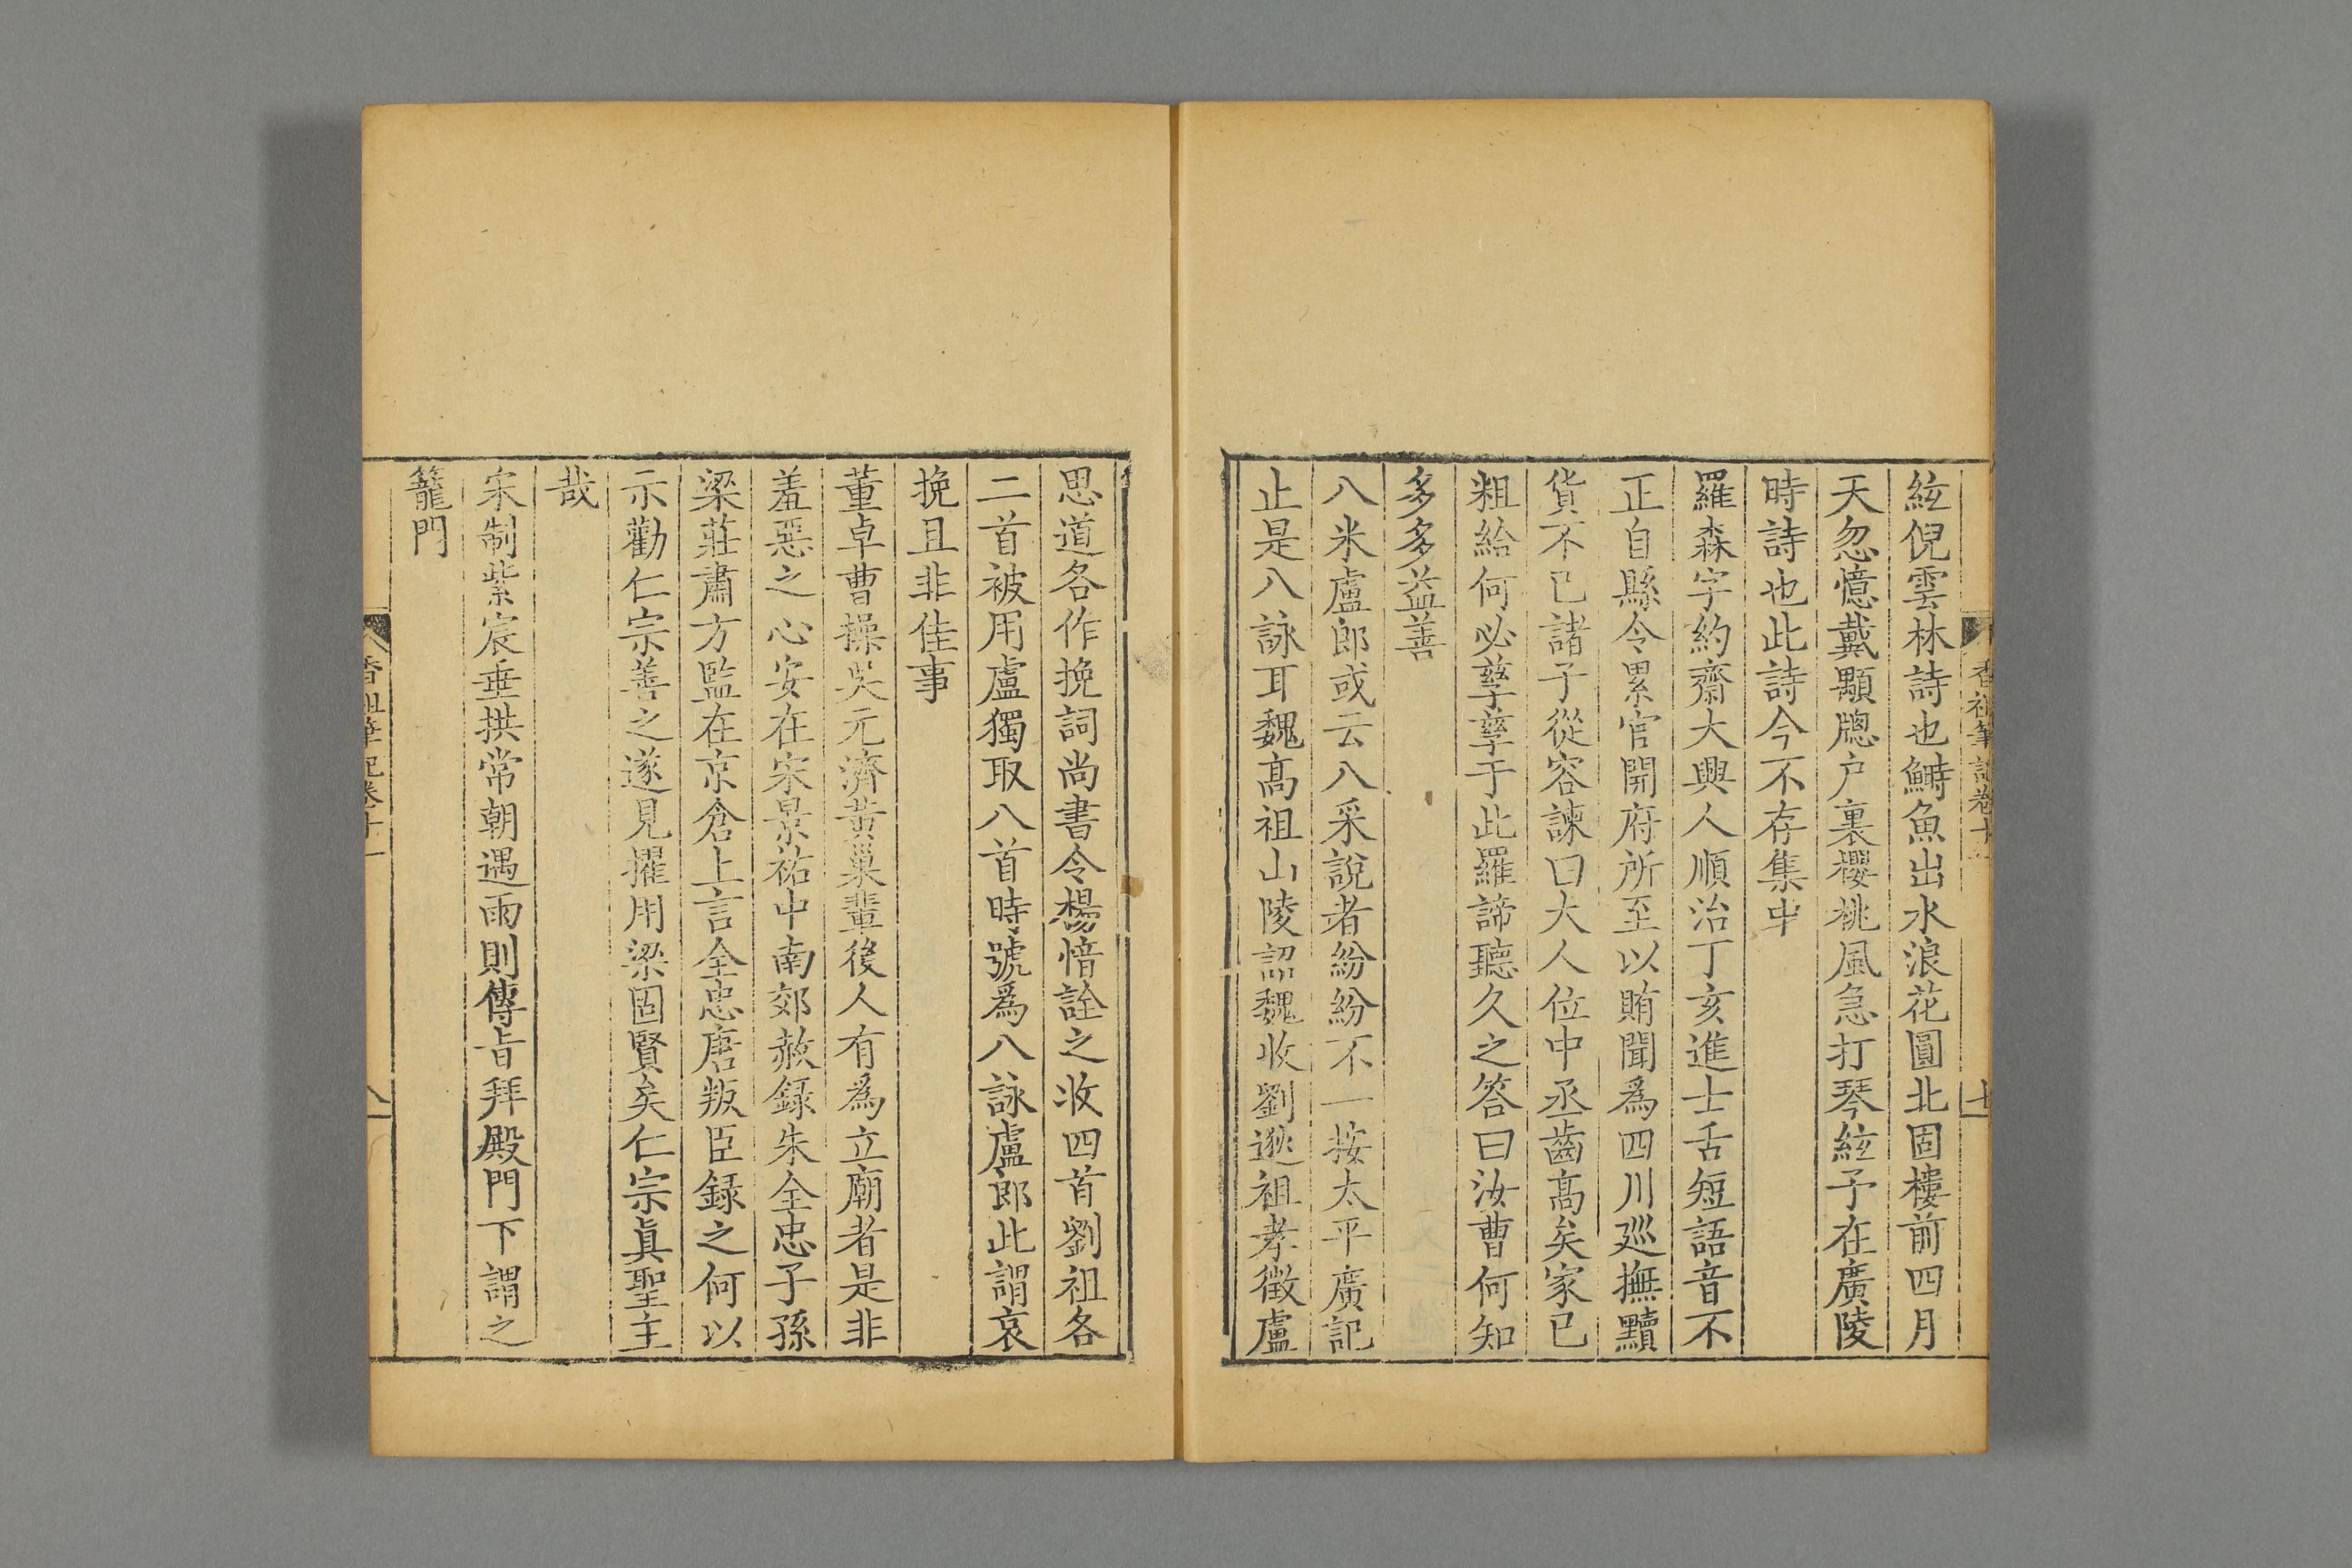 香祖筆記卷十一
絃倪雲林詩也鰣魚出水浪花圓北固樓前四月
天忽憶戴顒牕戶裏櫻桃風急打琴絃予在廣陵
時詩也此詩今不存集中
羅森字約齋大興人順治丁亥進士舌短語音不
正自縣令累官開府所至以賄聞爲四川廵撫黷
貨不已諸子從容諫曰大人位中丞齒髙矣家已
粗給何必孳孳于此羅諦聽久之答曰汝曹何知
多多益善
八米盧郎或云八采說者紛紛不一按太平廣記
止是八詠耳魏髙祖山陵詔魏收劉逖祖孝徴盧
思道各作挽詞尚書令楊愔詮之收四首劉祖各
二首被用盧獨取八首時號爲八詠盧郎此謂哀
挽且非佳事
董卓曹操吳元濟黃巢輩後人有爲立廟者是非
羞惡之心安在宋景祐中南郊赦録朱全忠子孫
梁莊肅方監在京倉上言全忠唐叛臣録之何以
示勸仁宗善之遂見擢用梁固賢矣仁宗眞聖主
哉
宋制紫宸垂拱常朝遇雨則傳旨拜殿門下謂之
籠門
香祖筆記卷十一
八